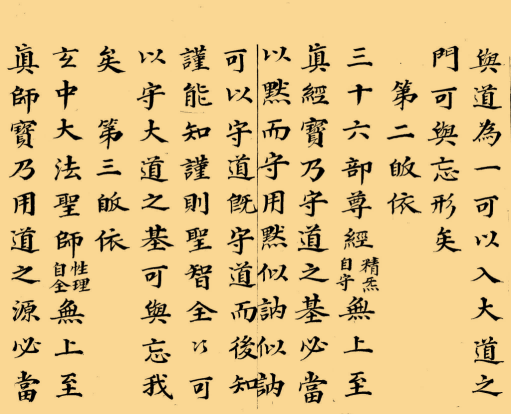 與道為一可以入大道之
門可與忘形矣
第二皈依
三十六部尊經精炁自守無上至
眞經寶乃守道之基必當
以黙而守用黙似訥似訥
可以守道旣守道而後知
謹能知謹則聖智全可
以守大道之基可與忘我
矣　第三皈依
玄中大法聖師性理自全無上至
眞師寶乃用道之源必當